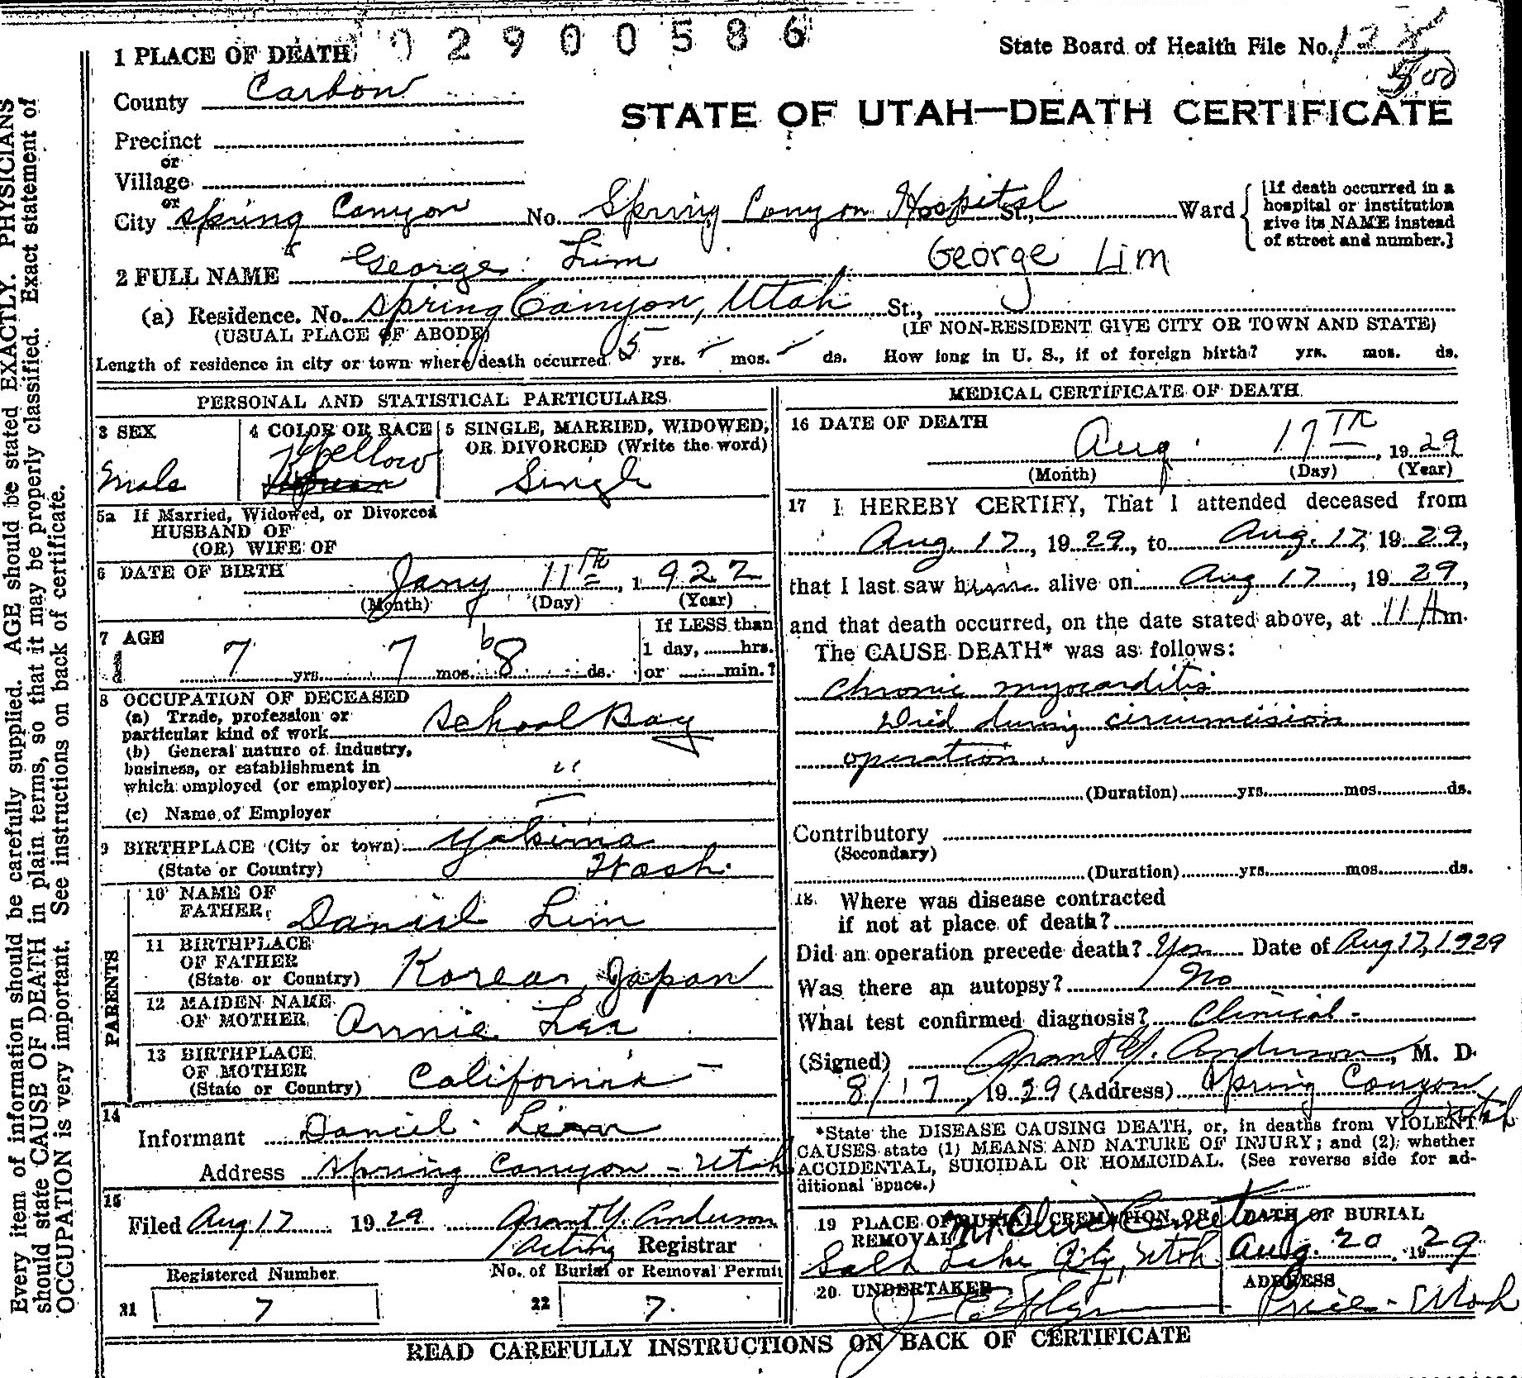 02900586
State Board of Health File No. 128
500
STATE OF UTAH—DEATH CERTIFICATE
1 PLACE OF DEATH
County Carbon
Precinct
or
Village
or
City Spring Canyon No. Spring Canyon Hospital St., Ward
[If death occurred in a
hospital or institution
give its NAME instead
of street and number.]
2 FULL NAME George Lim George Lim
(a) Residence. No. Spring Canyon, Utah St.,
(USUAL PLACE OF ABODE) (IF NON-RESIDENT GIVE CITY OR TOWN AND STATE)
Length of residence in city or town where death occurred 5 yrs. - mos. - ds. How long in U. S., if of foreign birth? yrs. mos. ds.
PERSONAL AND STATISTICAL PARTICULARS
3 SEX
Male
4 COLOR OR RACE
Yellow
5 SINGLE, MARRIED, WIDOWED,
OR DIVORCED (Write the word)
Single
5a If Married, Widowed, or Divorced
HUSBAND OF
(OR) WIFE OF
6 DATE OF BIRTH Jany 11th, 1922
(Month) (Day) (Year)
7 AGE
7 yrs. 7 mos. 8 ds.
If LESS than
1 day, hrs.
or min.?
8 OCCUPATION OF DECEASED
(a) Trade, profession or
particular kind of work School Boy
(b) General nature of industry,
business, or establishment in
which employed (or employer) "
(c) Name of Employer —
9 BIRTHPLACE (City or town) Yakima
(State or Country) Wash.
PARENTS
10 NAME OF
FATHER Daniel Lim
11 BIRTHPLACE
OF FATHER
(State or Country) Korea, Japan
12 MAIDEN NAME
OF MOTHER Annie Lee
13 BIRTHPLACE
OF MOTHER
(State or Country) California -
14
Informant Daniel Lim
Address Spring Canyon - Utah
15
Filed Aug 17 1929 Grant Y. Anderson
Acting Registrar
Registered Number
21 7
No. of Burial or Removal Permit
22 7.
MEDICAL CERTIFICATE OF DEATH
16 DATE OF DEATH
Aug. 17TH, 1929
(Month) (Day) (Year)
17 I HEREBY CERTIFY, That I attended deceased from
Aug. 17, 1929, to Aug. 17, 1929,
that I last saw him alive on Aug 17, 1929,
and that death occurred, on the date stated above, at 11 A m.
The CAUSE DEATH* was as follows:
Chronic myocarditis
Died during circumcision
operation.
(Duration) yrs. mos. ds.
Contributory
(Secondary)
(Duration) yrs. mos. ds.
18. Where was disease contracted
if not at place of death?
Did an operation precede death? Yes Date of Aug 17, 1929
Was there an autopsy? No
What test confirmed diagnosis? Clinical -
(Signed) Grant Y. Anderson, M. D.
8/17, 1929 (Address) Spring Canyon
Utah
*State the DISEASE CAUSING DEATH, or, in deaths from VIOLENT
CAUSES state (1) MEANS AND NATURE OF INJURY; and (2) whether
ACCIDENTAL, SUICIDAL OR HOMICIDAL. (See reverse side for ad-
ditional space.)
19 PLACE OF BURIAL, CREMATION OR
REMOVAL Mt Olivet Cemetery
Salt Lake City, Utah
DATE OF BURIAL
Aug. 20 1929
20. UNDERTAKER
ADDRESS
Price - Utah
READ CAREFULLY INSTRUCTIONS ON BACK OF CERTIFICATE
Every item of information should be carefully supplied. AGE should be stated EXACTLY. PHYSICIANS
should state CAUSE OF DEATH in plain terms, so that it may be properly classified. Exact statement of
OCCUPATION is very important. See instructions on back of certificate.